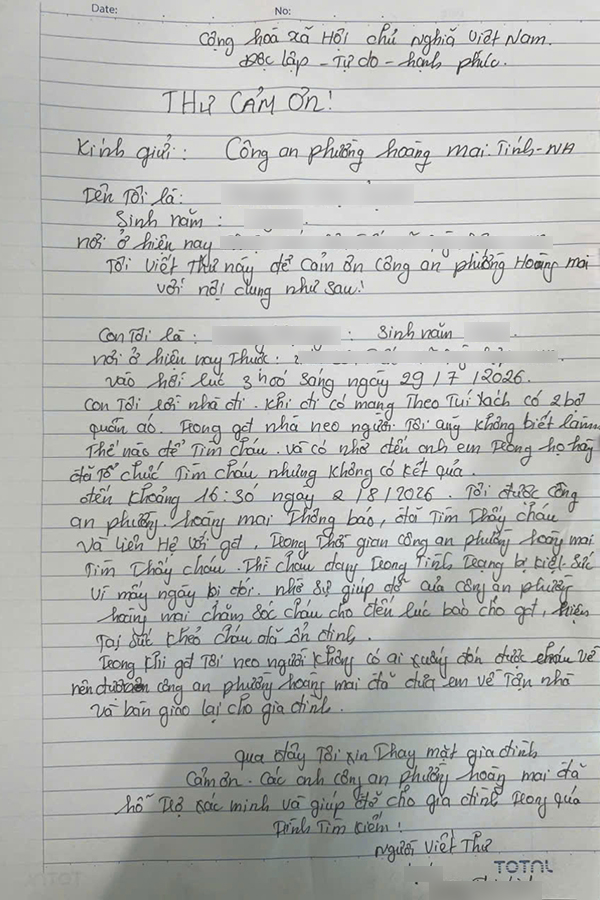 Date: No:
Cộng hoà xã Hội chủ nghĩa Việt Nam.
Độc lập - Tự do - hạnh phúc.
THƯ CẢM ƠN!
Kính gửi: Công an phường hoàng mai. Tỉnh - NA
Tên Tôi là:
Sinh năm:
nơi ở hiện nay
Tôi viết Thư này để Cảm ơn Công an phường Hoàng mai
với nội dung như sau!
Con Tôi là: : Sinh năm
nơi ở hiện nay Thuộc:
vào hồi lúc 3h00 sáng ngày 29/7/2026.
Con Tôi rời nhà đi. Khi đi có mang Theo Túi xách có 2 bộ
quần áo. Trong gđ nhà neo người. Tôi cũng không biết làm
Thế nào để Tìm cháu. và có nhờ đến anh em Trong họ hàng
đã Tổ chức Tìm cháu nhưng không có kết quả.
đến khoảng 16:30 ngày 2/8/2026. Tôi được công
an phường. hoàng mai Thông báo, đã Tìm Thấy cháu
và liên Hệ với gđ, Trong Thời gian công an phường hoàng mai
Tìm Thấy cháu. Thì cháu đang Trong Tình Trạng bị kiệt sức
vì mấy ngày bị đói. nhờ sự giúp đỡ của công an phường
hoàng mai chăm sóc cháu cho đến lúc báo cho gđ, hiện
Tại sức khoẻ cháu đã ổn định.
Trong khi gđ Tôi neo người không có ai xuống đón được cháu về
nên được công an phường hoàng mai đã đưa em về Tận nhà
và bàn giao lại cho gia đình.
qua đây Tôi xin Thay mặt gia đình
Cảm ơn. Các anh công an phường hoàng mai đã
hỗ Trợ xác minh và giúp đỡ cho gia đình Trong quá
Trình Tìm kiếm!
Người Viết Thư
TOTAL